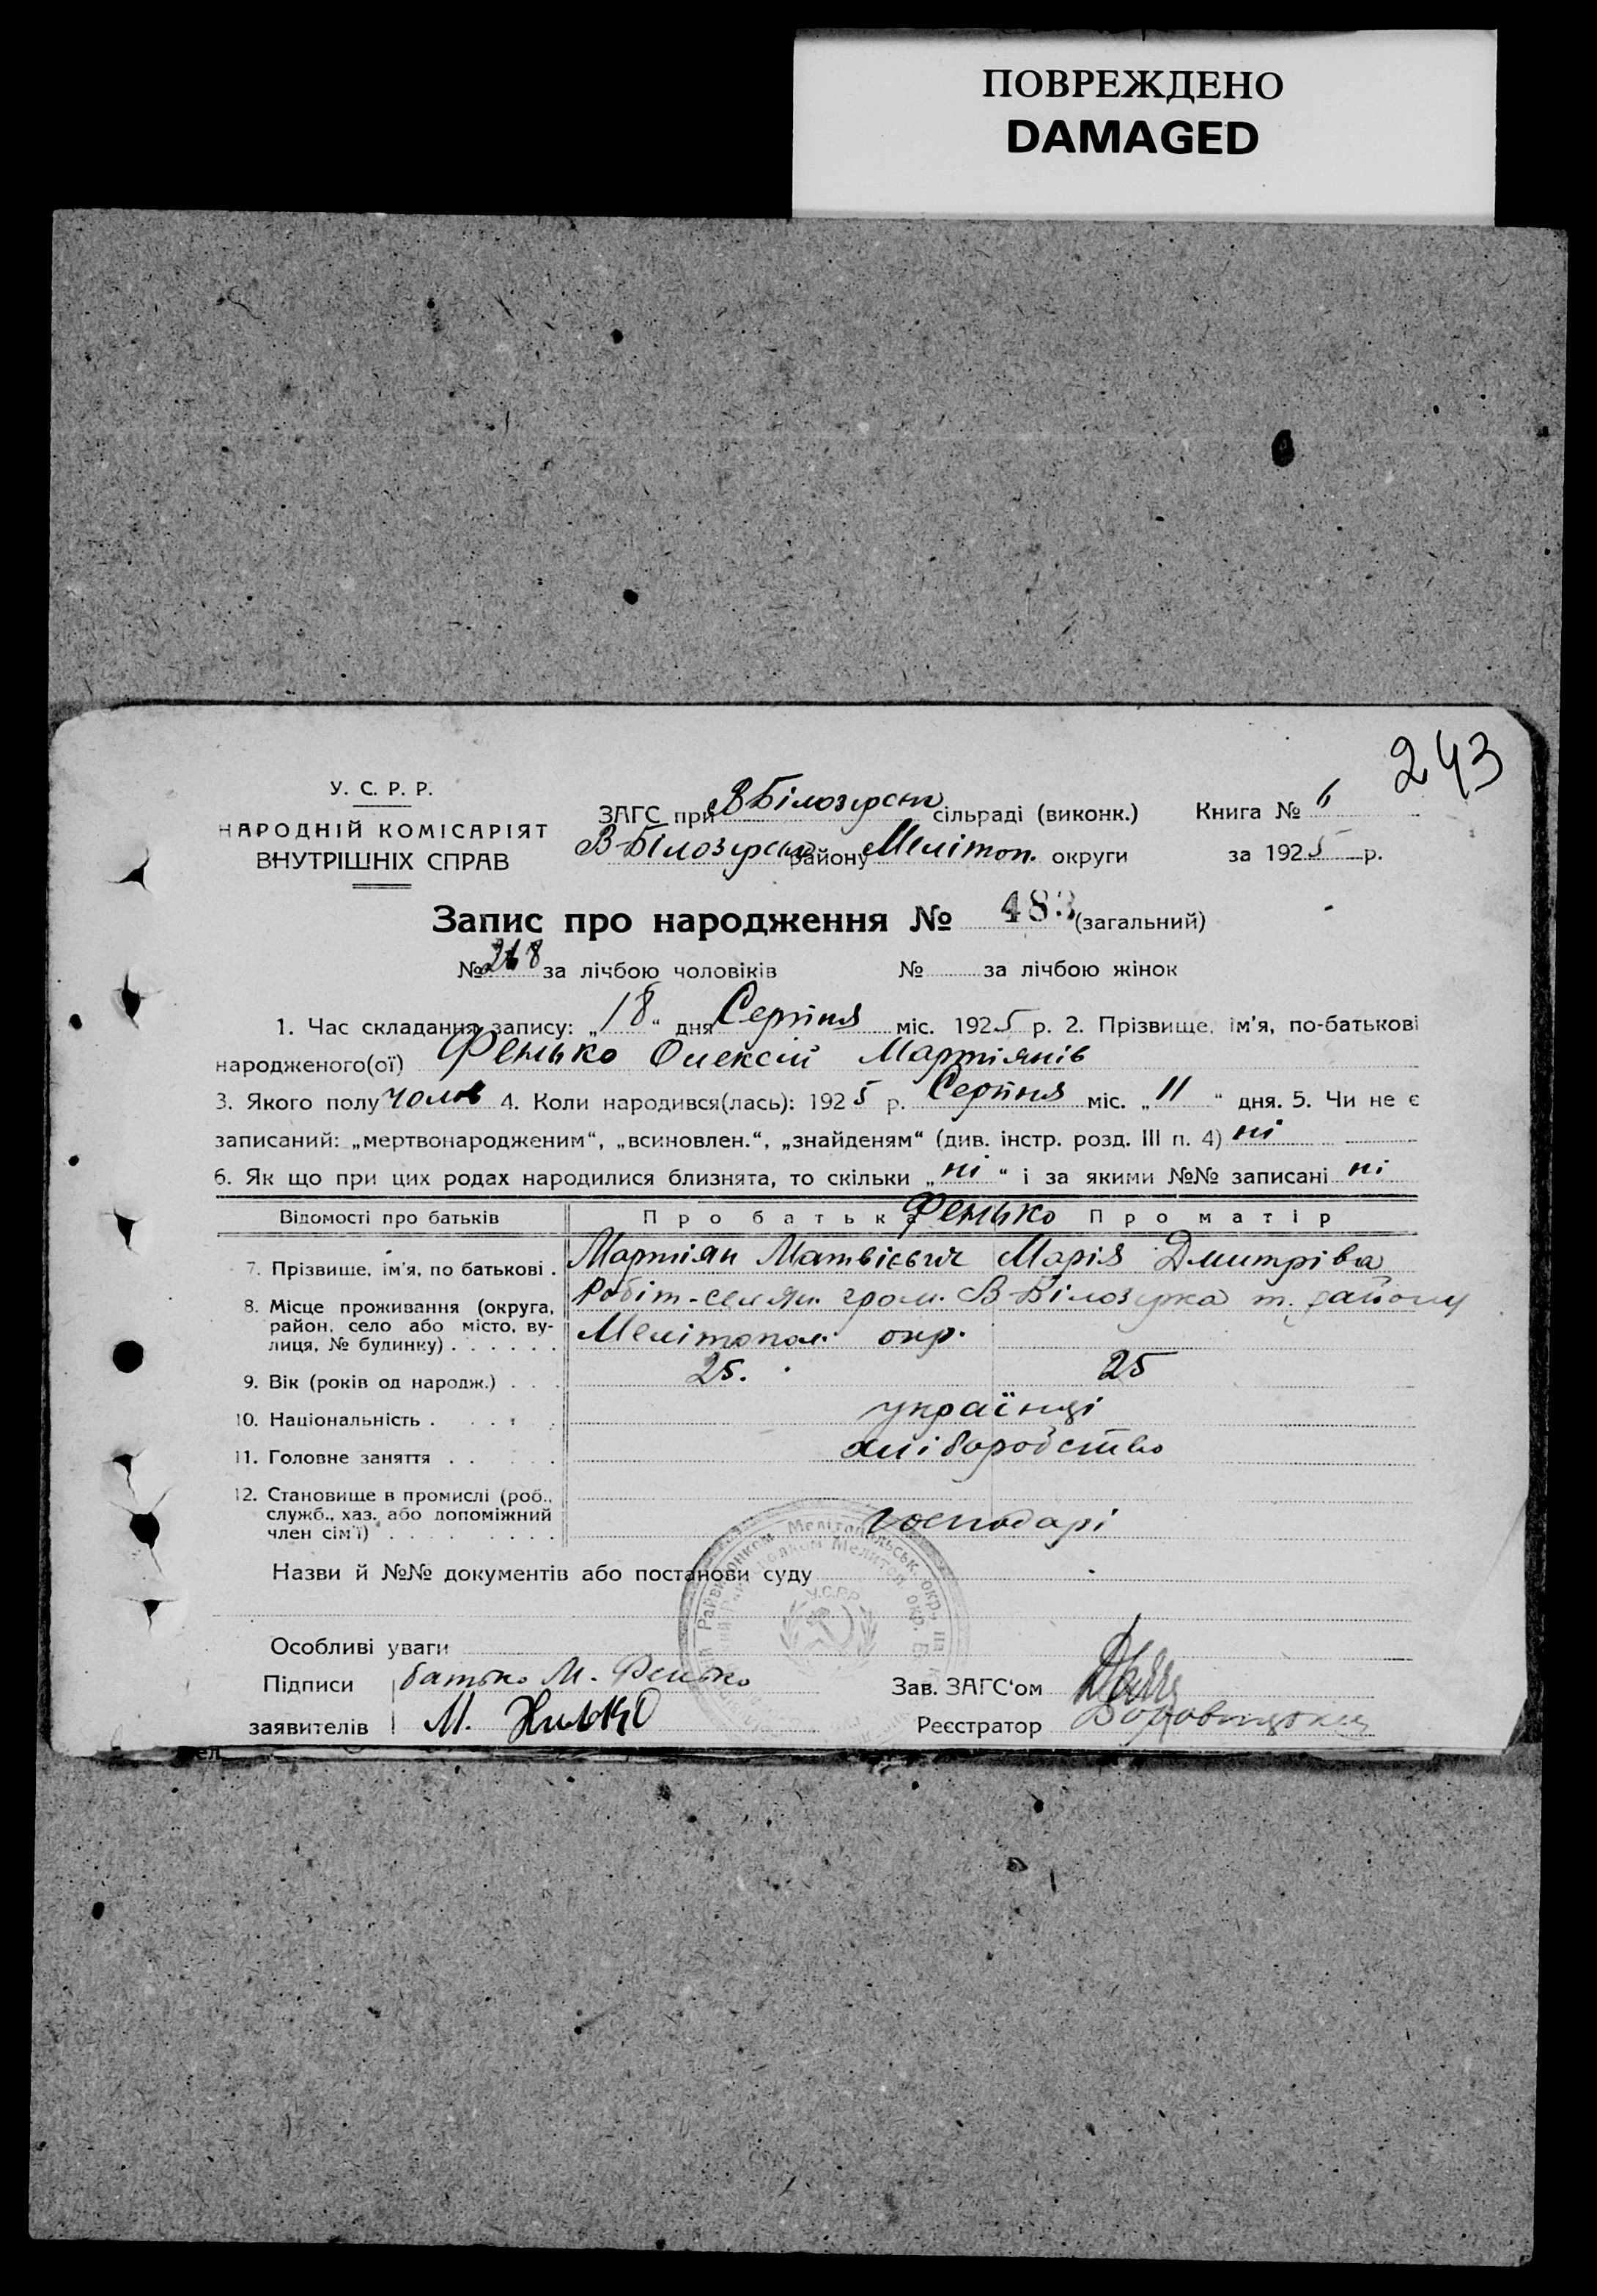 ПОВРЕЖДЕНО
DAMAGED
243
У. С. Р. Р.
НАРОДНІЙ КОМІСАРІЯТ
ВНУТРІШНІХ СПРАВ
ЗАГС при В Білозерськ сільраді (виконк.)
В-Білозерськ району Мелітоп. округи
Книга № 6
за 1925 р.
Запис про народження № 483 (загальний)
№ 268 за лічбою чоловіків № за лічбою жінок
1. Час складання запису: „18“ дня Серпня міс. 1925 р. 2. Прізвище, ім'я, по-батькові
народженого(ої) Фенько Олексій Мартіянів
3. Якого полу чолов 4. Коли народився(лась): 1925 р. Серпня міс. „11“ дня. 5. Чи не є
записаний: „мертвонародженим“, „всиновлен.“, „знайденям“ (див. інстр. розд. III п. 4) ні
6. Як що при цих родах народилися близнята, то скільки „ні“ і за якими №№ записані ні
Відомості про батьків Про батька Фенько Про матір
7. Прізвище, ім'я, по батькові . Мартіян Матвієвич Марія Дмитріва
8. Місце проживання (округа, Робіт-селян. гром. В-Білозерка т. району
район, село або місто, ву- Мелітопол. окр.
лиця, № будинку) . . . . . .
9. Вік (років од народж.) . . . 25. 25
10. Національність . . . . . українці
11. Головне заняття . . . . . хліборобство
12. Становище в промислі (роб.,
служб., хаз. або допоміжний господарі
член сім'ї) . . . . . . . .
Назви й №№ документів або постанови суду
У.С.Р.Р.
Особливі уваги
Підписи батько М. Фенько
заявителів М.
Зав. ЗАГС'ом
Реєстратор